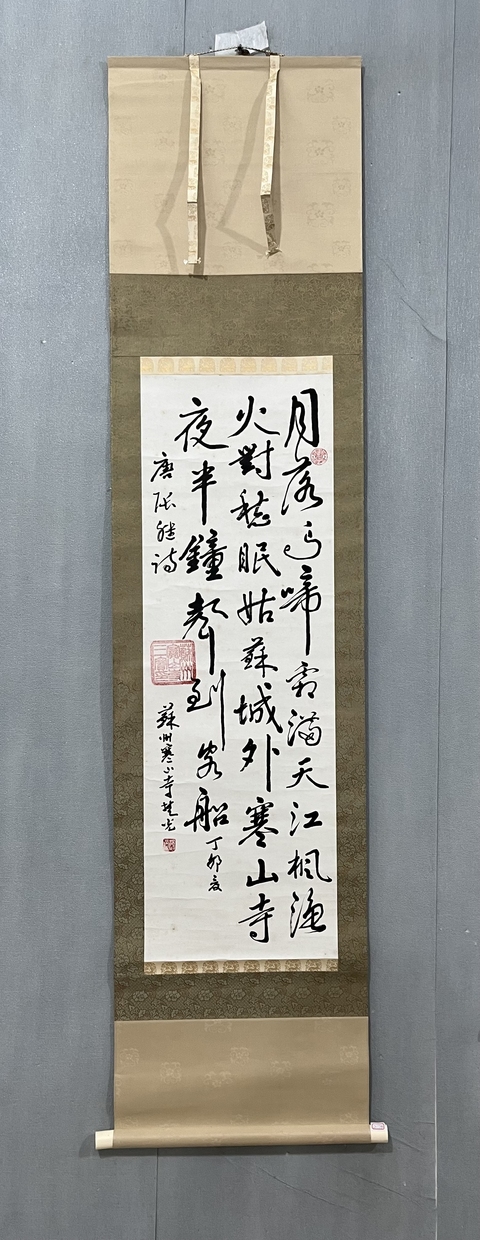 月落烏啼霜滿天江楓漁
火對愁眠姑蘇城外寒山寺
夜半鐘聲到客船
丁卯夏
唐張継詩
蘇州寒山寺楚光